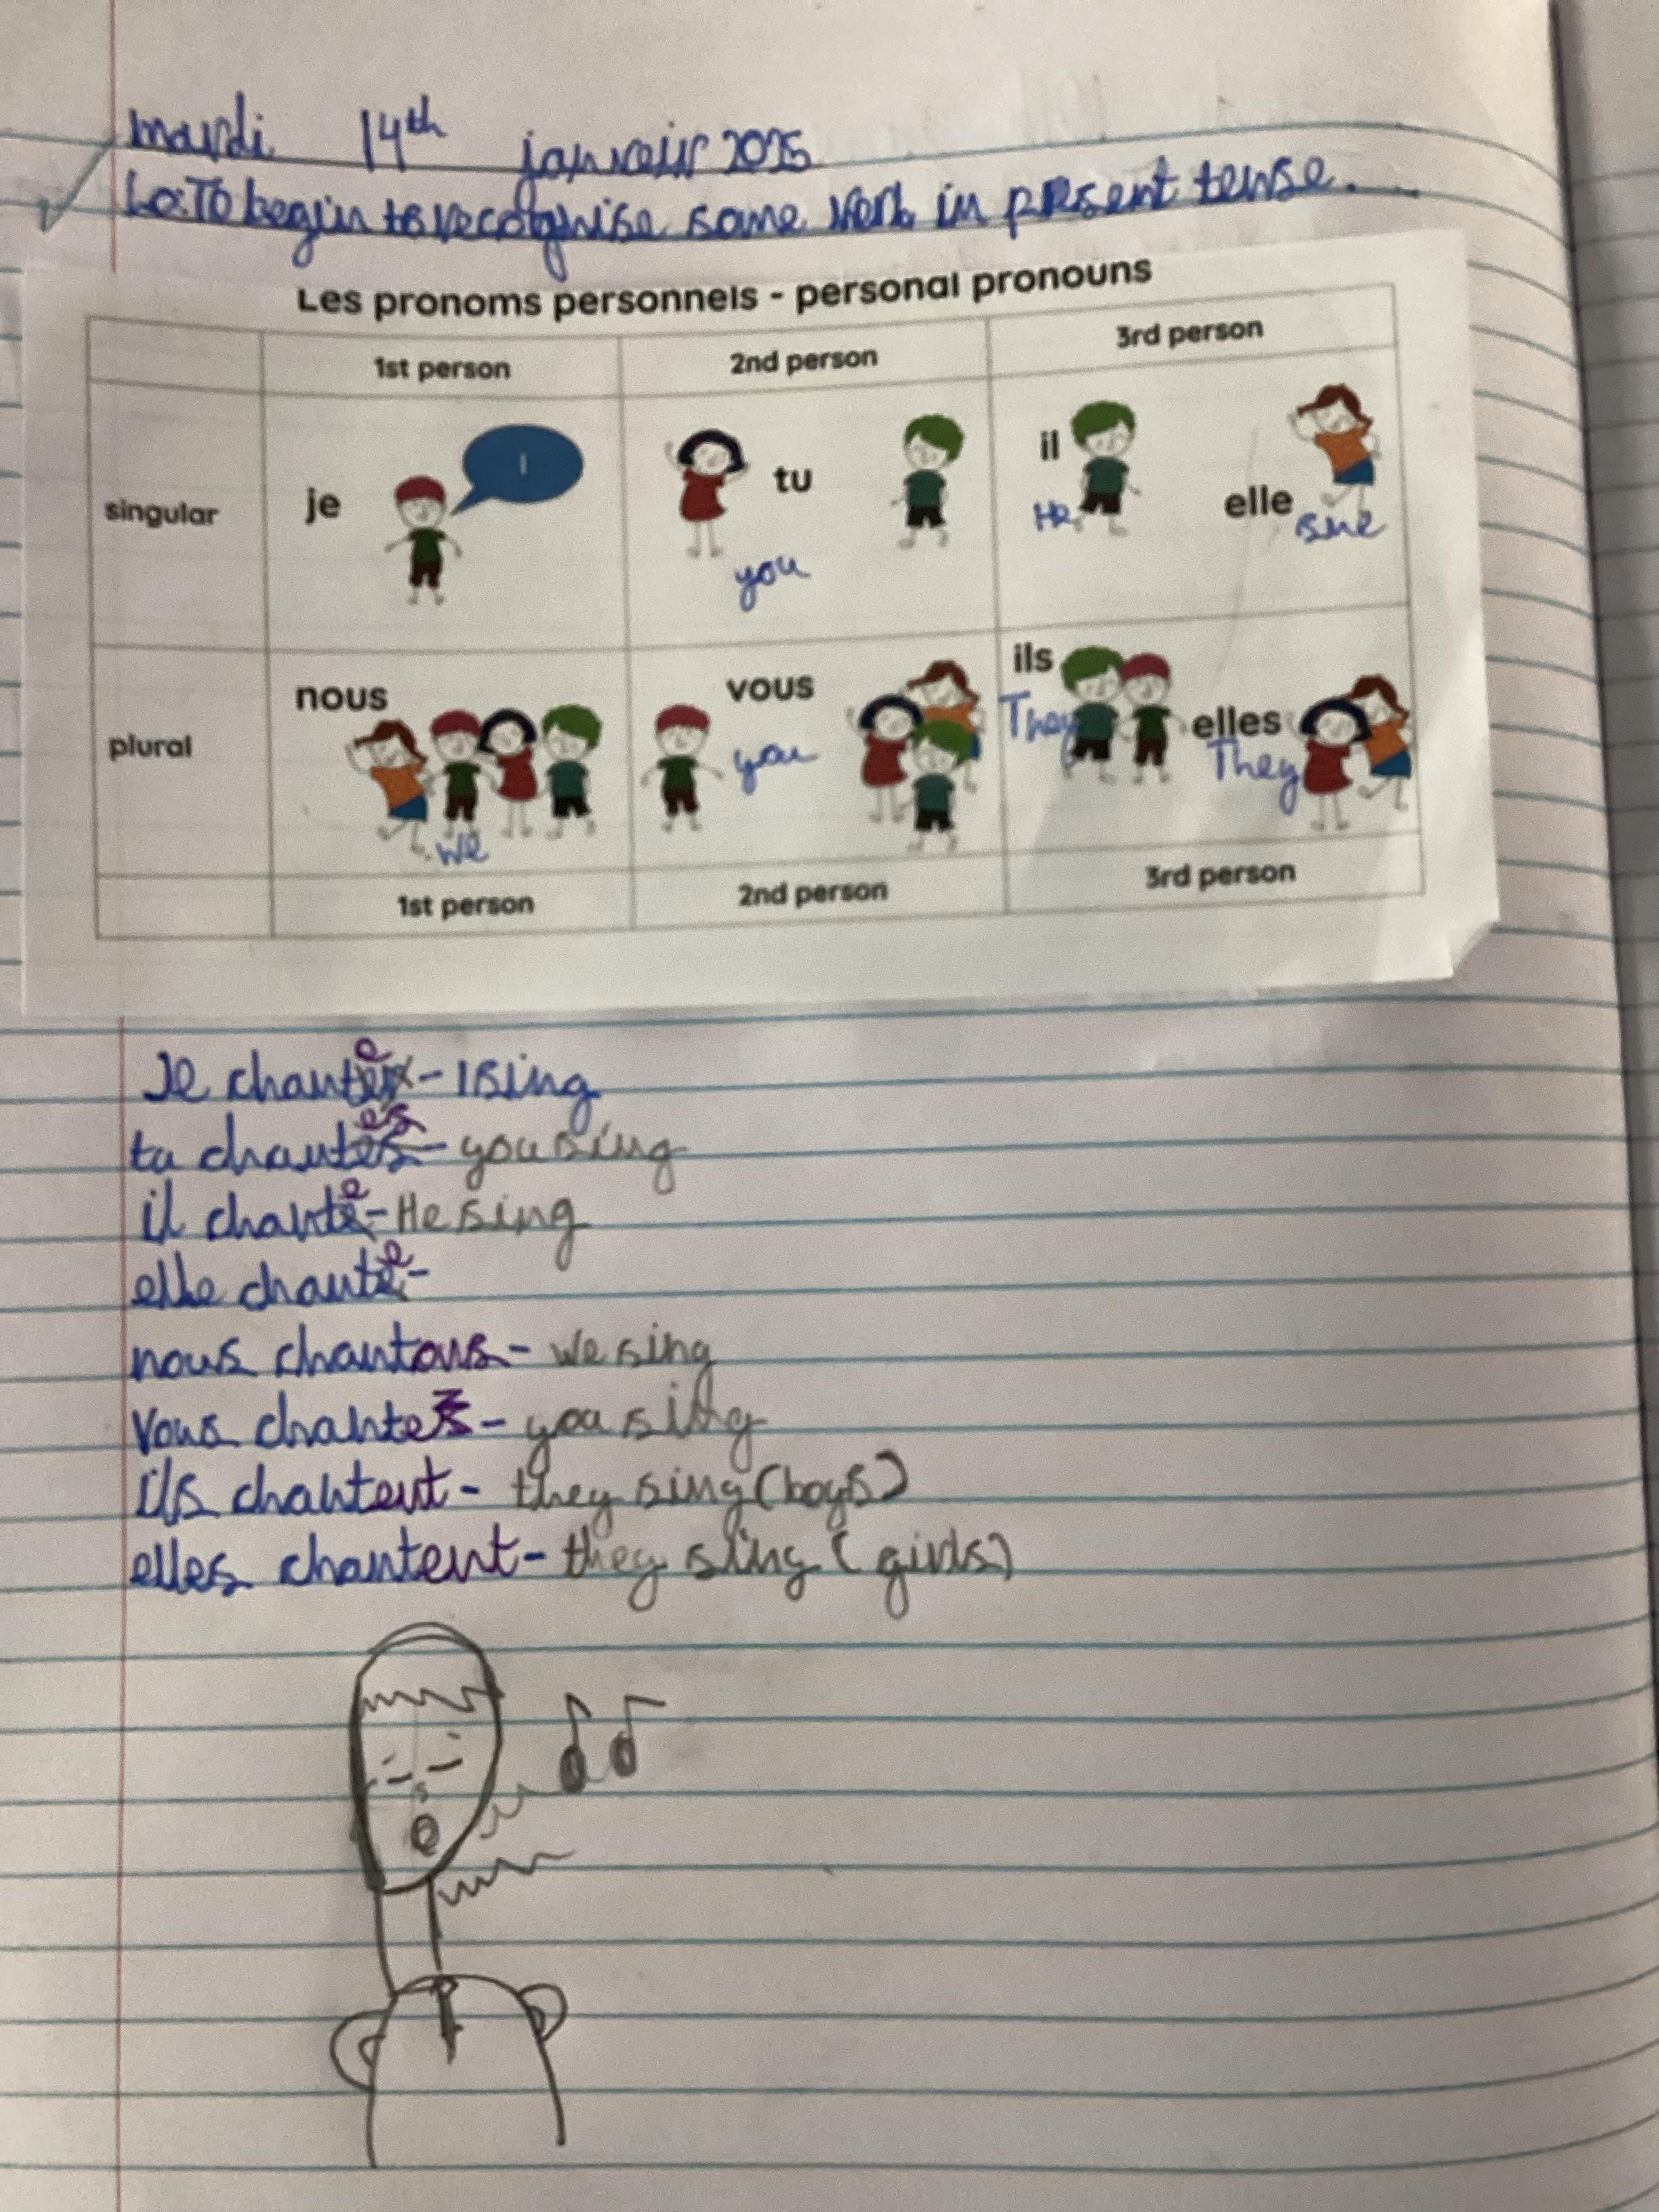 mardi 14th janvier 2025
Lo: To begin to recognise some verb in present tense.
Les pronoms personnels - personal pronouns
1st person 2nd person 3rd person
singular je I tu il elle
you He she
plural nous vous ils elles
we you They They
1st person 2nd person 3rd person
Je chante - I sing
tu chantes - you sing
il chante - He sing
elle chante -
nous chantons - we sing
vous chantez - you sing
ils chantent - they sing (boys)
elles chantent - they sing (girls)